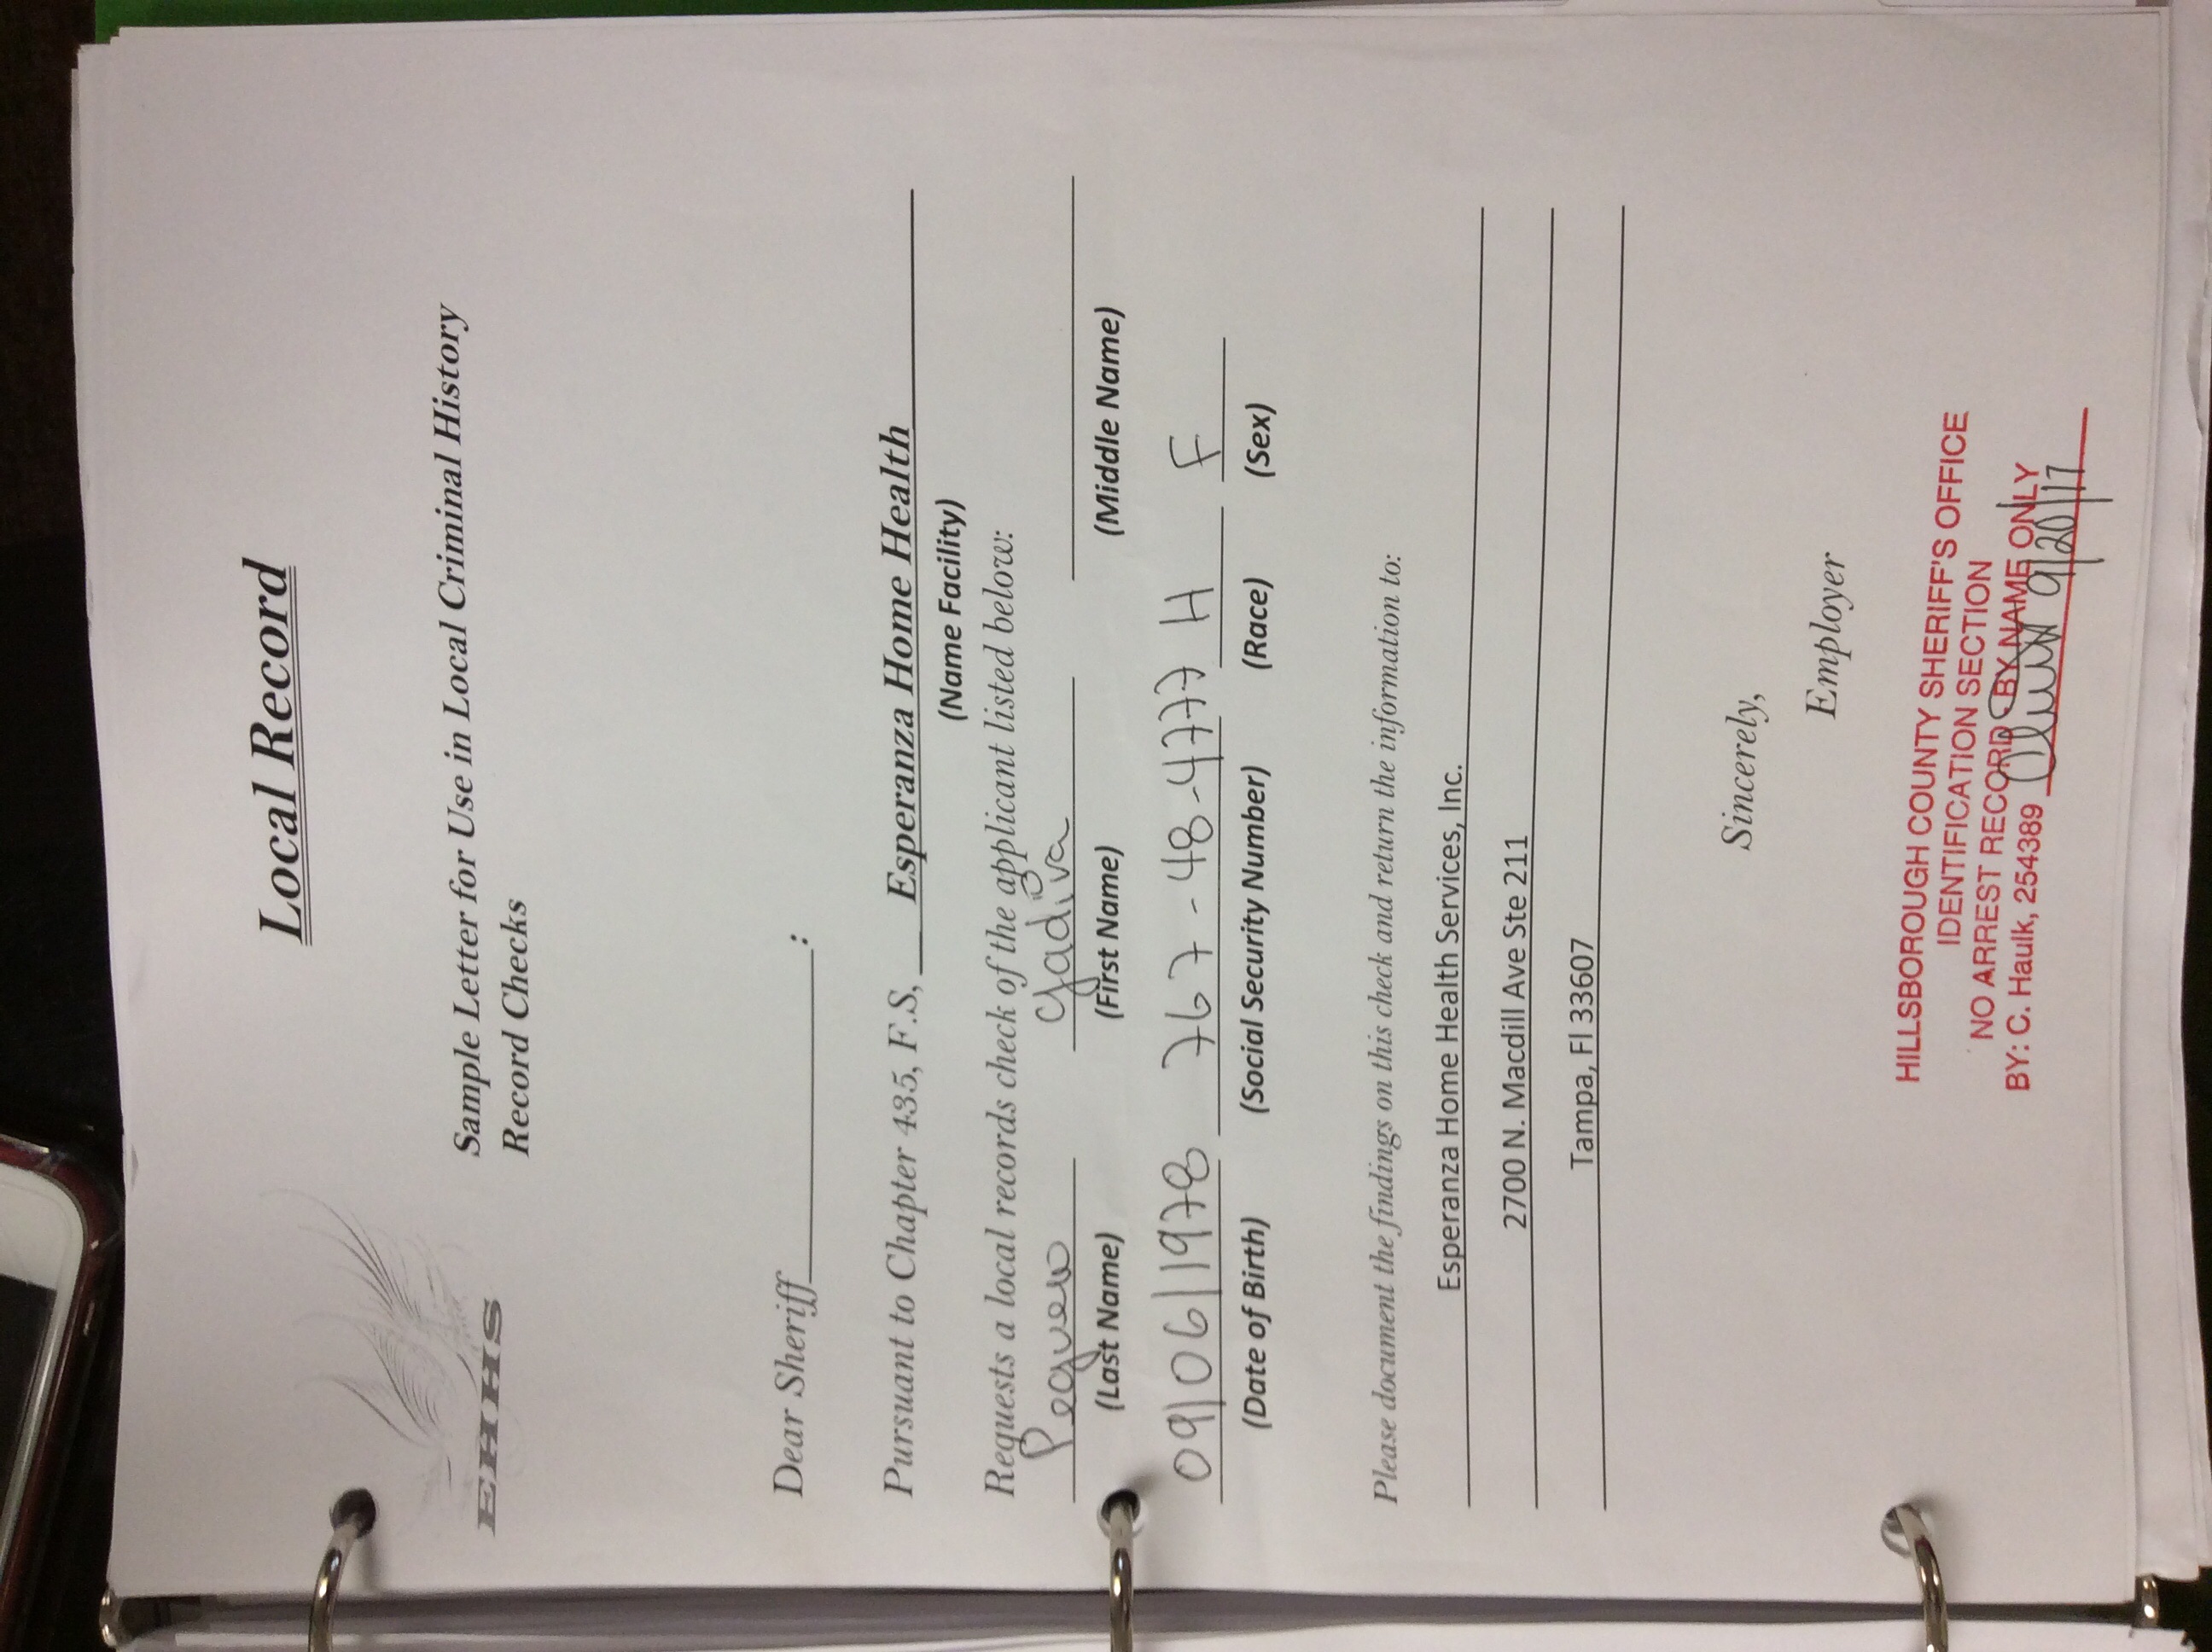 Local Record
EHHS
Sample Letter for Use in Local Criminal History
Record Checks
Dear Sheriff :
Pursuant to Chapter 435, F.S, Esperanza Home Health
(Name Facility)
Requests a local records check of the applicant listed below:
Peguero
(Last Name) (First Name) (Middle Name)
09/06/1978 767-48-4777 H F
(Date of Birth) (Social Security Number) (Race) (Sex)
Please document the findings on this check and return the information to:
Esperanza Home Health Services, Inc.
2700 N. Macdill Ave Ste 211
Tampa, Fl 33607
Sincerely,
Employer
HILLSBOROUGH COUNTY SHERIFF'S OFFICE
IDENTIFICATION SECTION
NO ARREST RECORD BY NAME ONLY
BY: C. Haulk, 254389 9/20/17